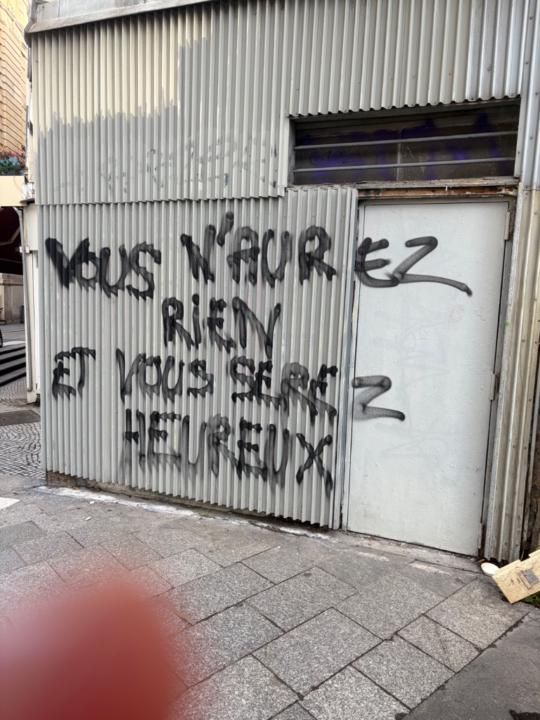 VOUS N'AUREZ
RIEN
ET VOUS SEREZ
HEUREUX